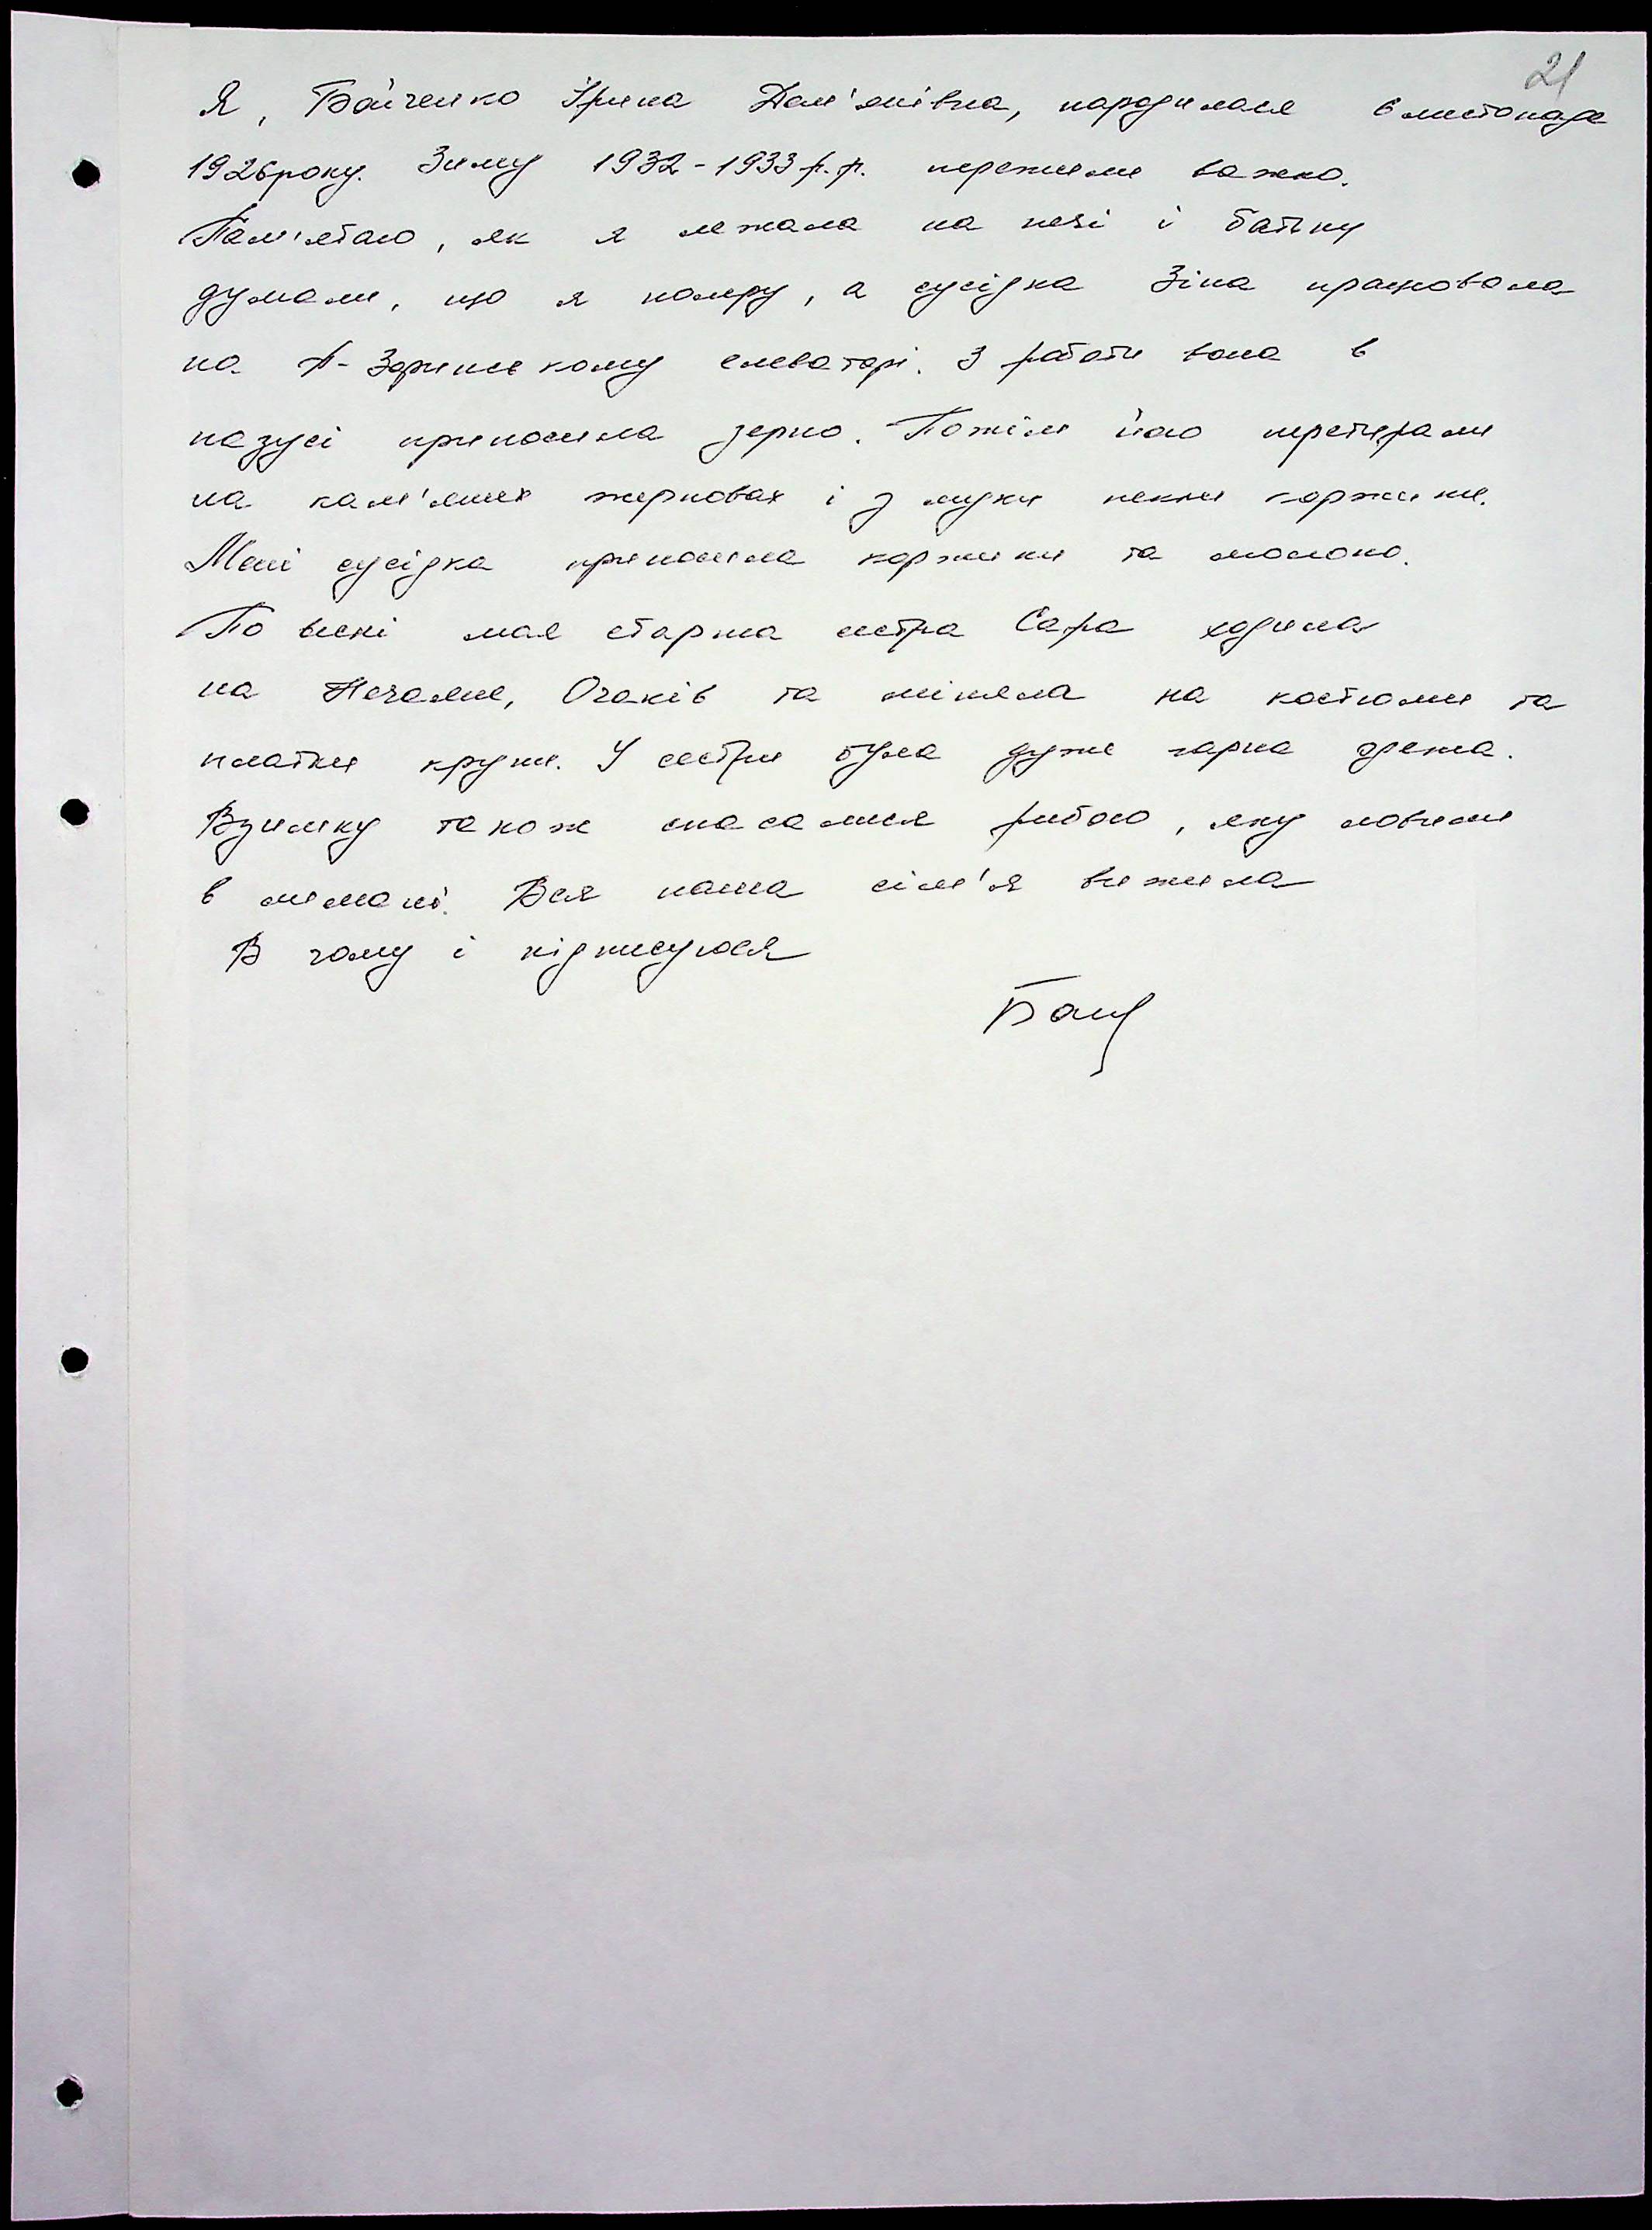 21
Я, Бойченко Ірина Дем'янівна, народилася в листопаде
1926 року. Зиму 1932-1933 р.р. пережили важко.
Пам'ятаю, як я лежала на печі і батьки
думали, що я помру, а сусідка Зіна працювала
на елеваторі. З роботи вона в
пазусі приносила зерно. Потім його перетирали
на кам'яних жерновах і з муки пекли коржики.
Мені сусідка приносила коржики та молоко.
По весні моя старша сестра Сара ходила
на Нечаяне, Очаків та міняла на костюми та
платки крупи. У сестри була дуже гарна одежа.
Взимку також спасалися рибою, яку ловили
в лимані. Вся наша сім'я вижила
В чому і підписуюся